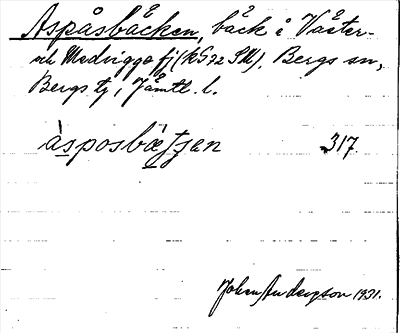 Aspåsbäcken, bäck å Väster-
och Medriggofj (kS72 SM), Bergs sn,
Bergs tg, Jämtl. l.
àsposbæʃʃen 317.
Johan Andersson 1931.